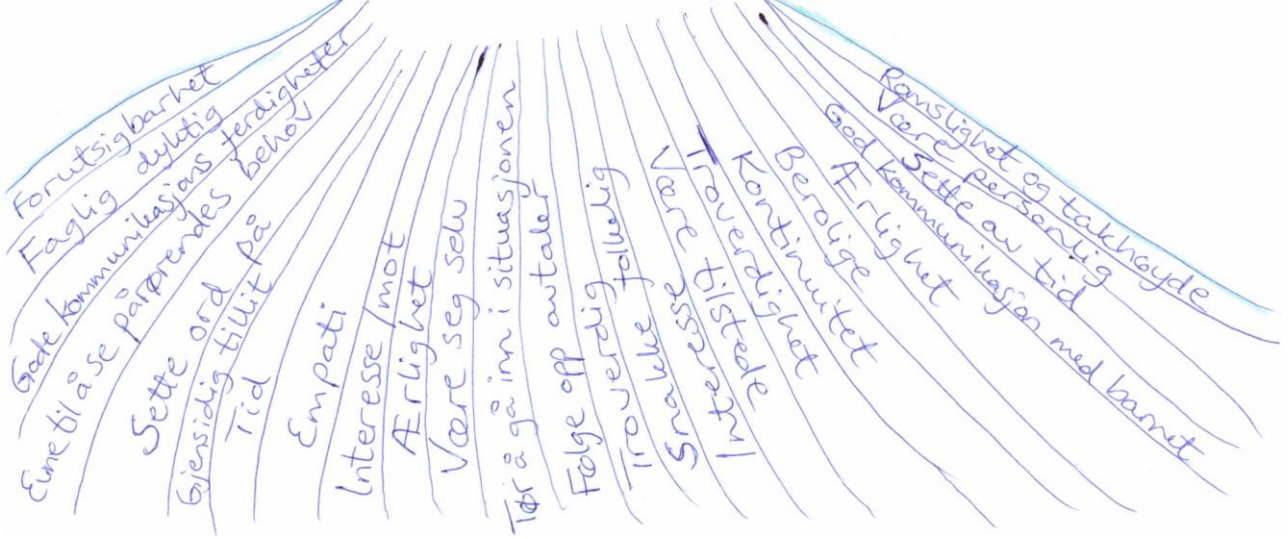 Forutsigbarhet
Faglig dyktig
Gode kommunikasjons ferdigheter
Evne til å se pårørendes behov
Sette ord på
Gjensidig tillit
Tid
Empati
Interesse/mot
Ærlighet
Være seg selv
Tør å gå inn i situasjonen
Følge opp avtaler
Troverdig
Snakke folkelig
Være tilstede
Interesse
Troverdighet
Kontinuitet
Berolige
Ærlighet
God kommunikasjon med barnet
Sette av tid
Være personlig
Romslighet og takhøyde